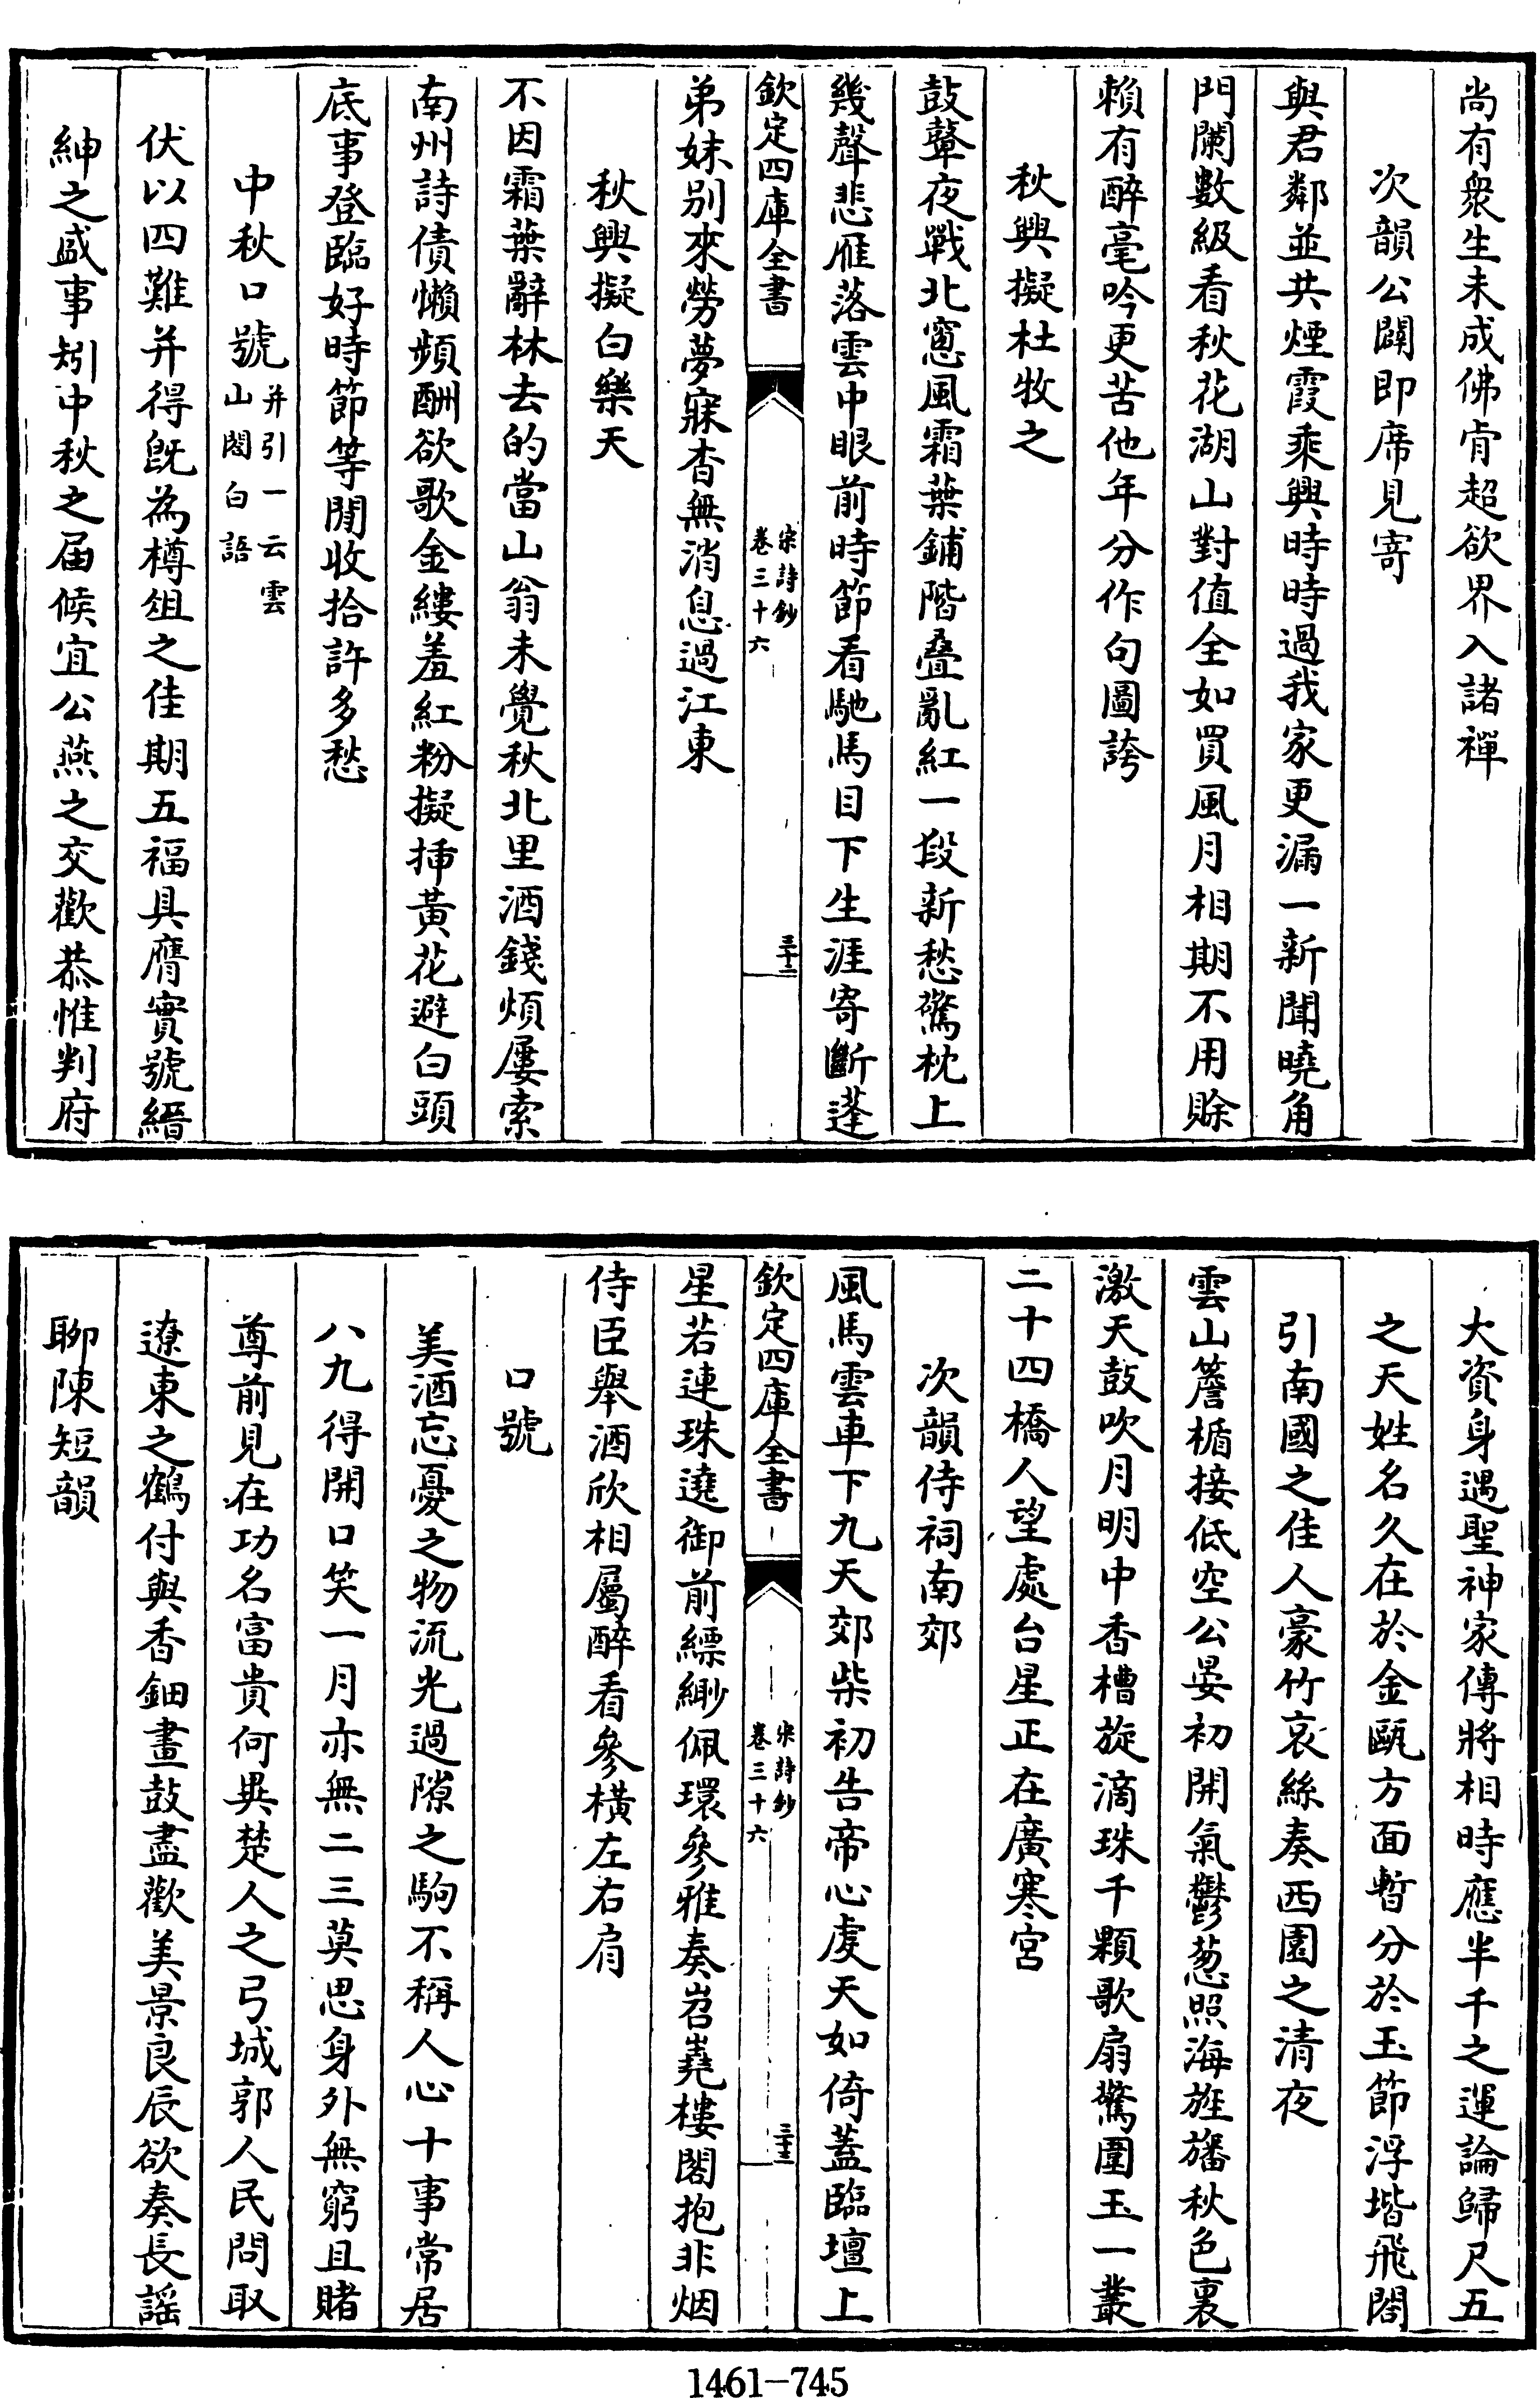 尚有衆生未成佛肯超欲界入諸禪
次韻公闢即席見寄
與君鄰並共煙霞乘興時時過我家更漏一新聞曉角
門闌數級看秋花湖山對值全如買風月相期不用賒
賴有醉毫吟更苦他年分作句圖誇
秋興擬杜牧之
鼓鼙夜戰北窓風霜葉鋪階疊亂紅一段新愁驚枕上
幾聲悲雁落雲中眼前時節看馳馬目下生涯寄斷蓬
欽定四庫全書
宋詩鈔
卷三十六
三十二
弟妹别來勞夢寐杳無消息過江東
秋興擬白樂天
不因霜葉辭林去的當山翁未覺秋北里酒錢煩屢索
南州詩債懶頻酬欲歌金縷羞紅粉擬揷黃花避白頭
底事登臨好時節等閒收拾許多愁
中秋口號并引一云雲山閣白語
伏以四難并得旣為樽俎之佳期五福具膺實號縉
紳之盛事矧中秋之届候宜公燕之交歡恭惟判府
大資身遇聖神家傳將相時應半千之運論歸尺五
之天姓名久在於金甌方面暫分於玉節浮堦飛閣
引南國之佳人豪竹哀絲奏西園之清夜
雲山簷楯接低空公晏初開氣鬱葱照海旌旛秋色裏
激天鼓吹月明中香槽旋滴珠千顆歌扇驚圍玉一叢
二十四橋人望處台星正在廣寒宮
次韻侍祠南郊
風馬雲車下九天郊柴初告帝心虔天如倚蓋臨壇上
欽定四庫全書
宋詩鈔
卷三十六
三十三
星若連珠遶御前縹緲佩環參雅奏岧嶤樓閣抱非烟
侍臣舉酒欣相屬醉看參橫左右肩
口號
美酒忘憂之物流光過隙之駒不稱人心十事常居
八九得開口笑一月亦無二三莫思身外無窮且賭
尊前見在功名富貴何異楚人之弓城郭人民問取
遼東之鶴付與香鈿畫鼓盡歡美景良辰欲奏長謡
聊陳短韻
1461-745